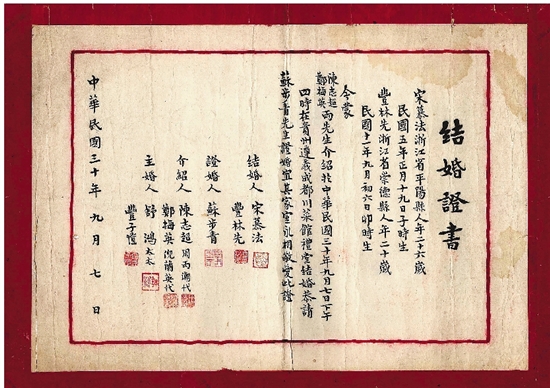 結婚證書
宋慕法浙江省平陽縣人年二十六歲
民國五年正月十九日子時生
豐林先浙江省崇德縣人年二十歲
民國十一年九月初六日卯時生
今蒙
陳志超
鄭梅英兩先生介紹於中華民國三十年九月七日下午
四時在貴州遵義成都川菜館禮堂結婚恭請
蘇步青先生證婚宜其家室互相敬愛此證
結婚人 宋慕法
豐林先
證婚人 蘇步青
介紹人 陳志超 代
鄭梅英 代
主婚人 舒鴻太太
豐子愷
中華民國三十年九月七日